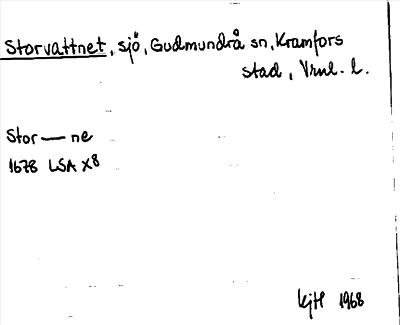 Storvattnet, sjö, Gudmundrå sn, Kramfors
stad, Vrnl. l.
Stor — ne
1678 LSA X8
kjH 1968